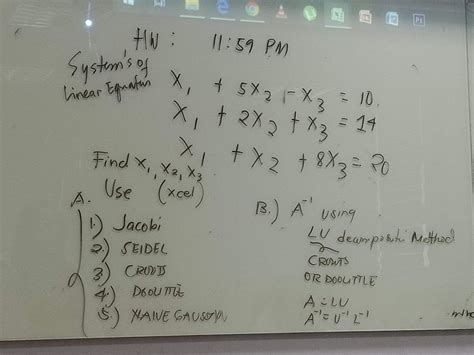 HW : 11:59 PM
System's of
Linear Equation
X₁ + 5X₂ - X₃ = 10
X₁ + 2X₂ + X₃ = 14
X₁ + X₂ + 8X₃ = 20
Find X₁, X₂, X₃
A. Use (xcel)
1.) Jacobi
2.) SEIDEL
3.) CROUTS
4.) DOOLITTLE
5.) NAIVE GAUSSIAN
B.) A⁻¹ using
LU decomposition Method
CROUTS
OR DOOLITTLE
A = LU
A⁻¹ = U⁻¹ L⁻¹